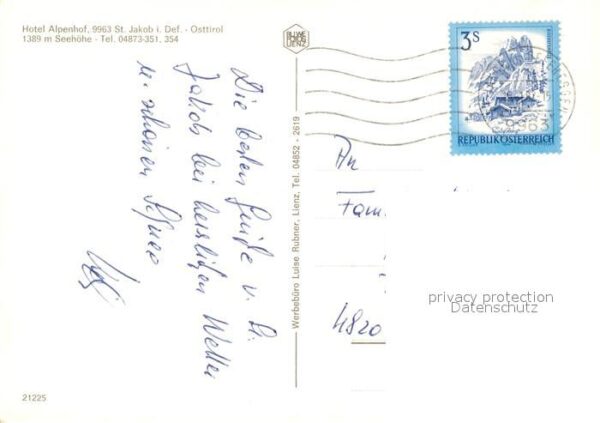 Hotel Alpenhof, 9963 St. Jakob i. Def. - Osttirol
1389 m Seehöhe - Tel. 04873-351, 354
Die besten Grüße v. St.
Jakob bei herrlichen Wetter
u. schönen Schnee
Werbebüro Luise Rubner, Lienz, Tel. 04852 - 2619
3S
REPUBLIK ÖSTERREICH
9963
An
Fam.
4820
privacy protection
Datenschutz
21225